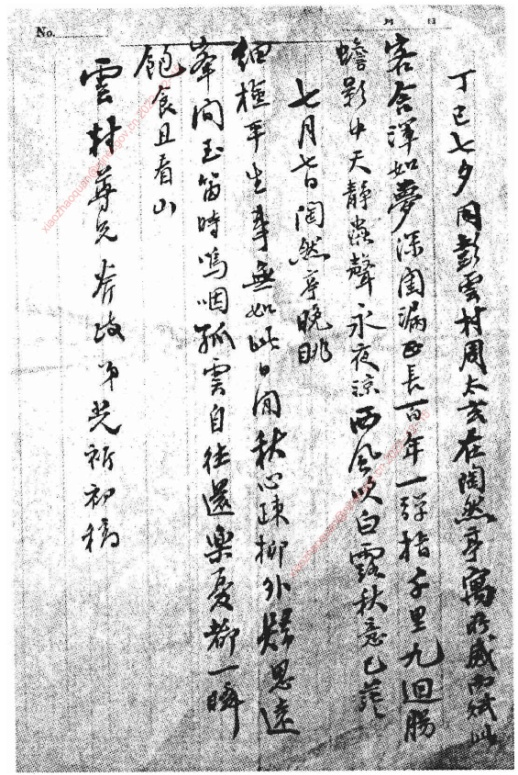 No.
月 日
丁巳七夕同彭雲村周太玄在陶然亭寓感而賦此
客舍渾如夢深閨漏正長百年一彈指千里九迴腸
蟾影中天靜蟲聲永夜涼西風吹白露秋意已茫
七月七日陶然亭晚眺
細檢平生事無如此日閒秋心疎柳外思遠
峯間玉笛時嗚咽孤雲自往還樂憂都一瞬
飽食且看山
雲村尊兄斧政弟光祈初稿